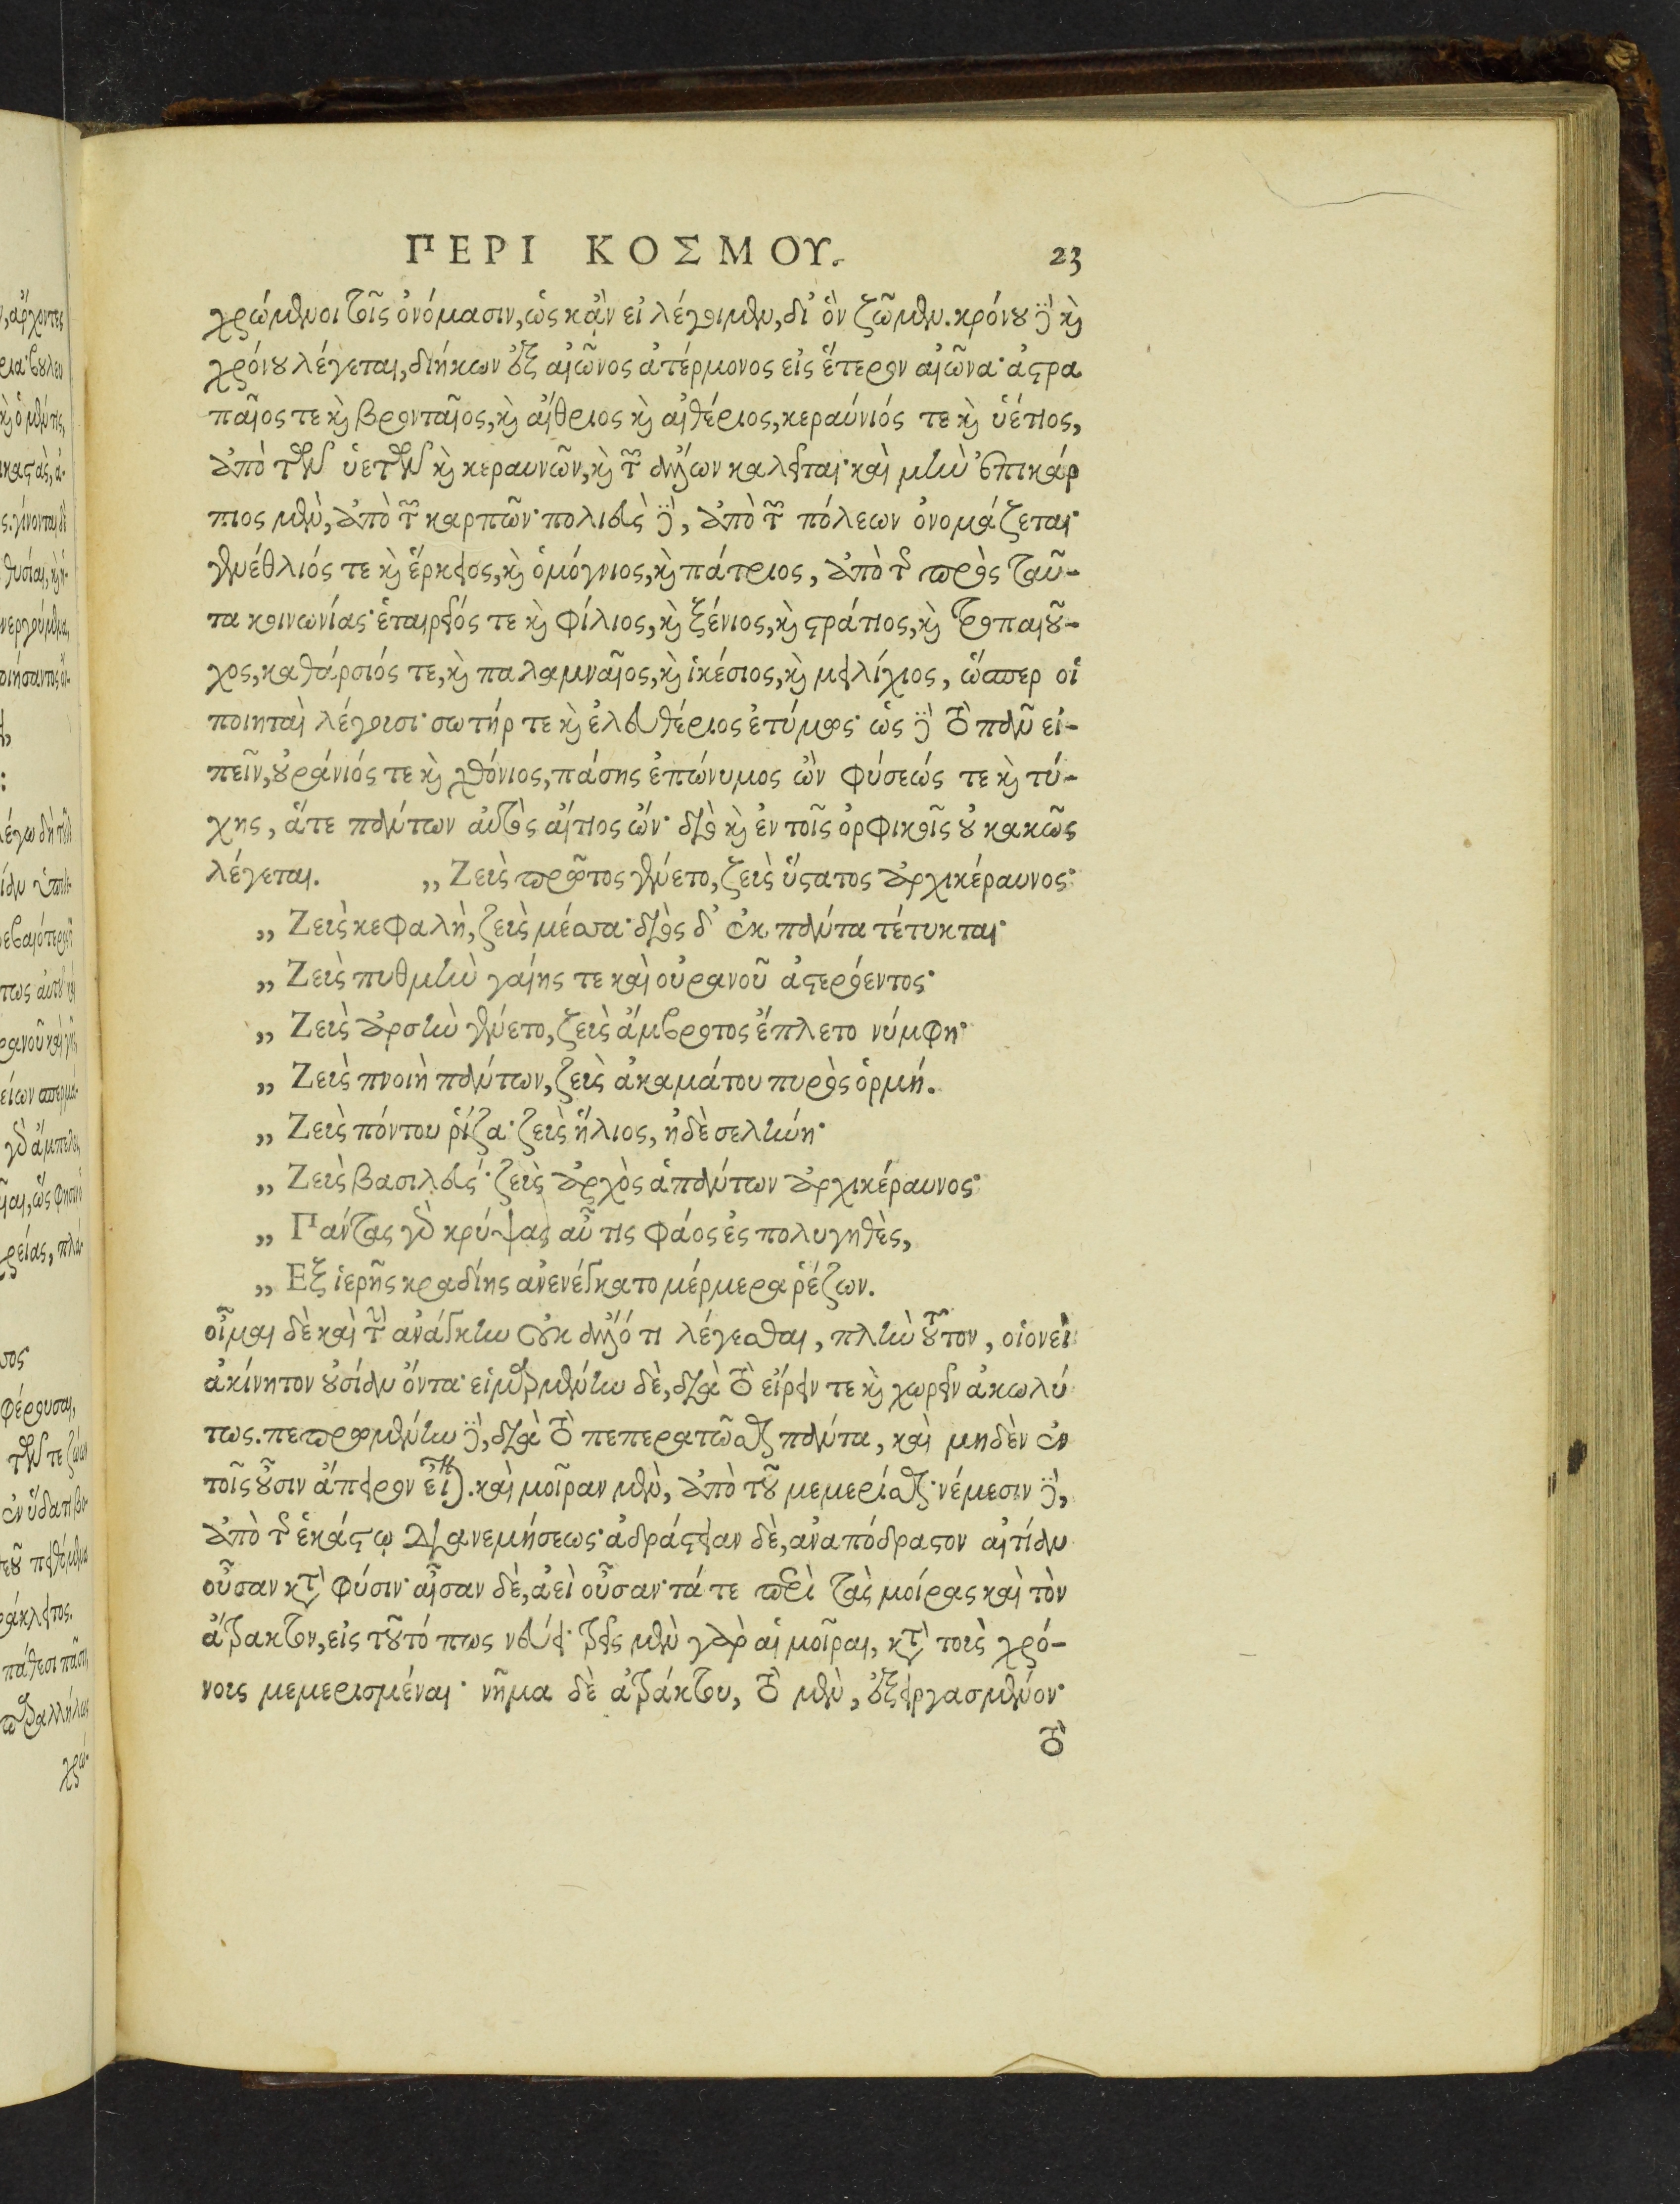 ΠΕΡΙ ΚΟΣΜΟΥ. 23
χρώμενοι τοῖς ὀνόμασιν, ὡς κἂν εἰ λέγοιμεν, δι' ὃν ζῶμεν. κρόνου δὲ καὶ
χρόνου λέγεται, διήκων ἐξ αἰῶνος ἀτέρμονος εἰς ἕτερον αἰῶνα· ἀστρα
παῖος τε καὶ βρονταῖος, καὶ αἴθριος καὶ αἰθέριος, κεραύνιός τε καὶ ὑέτιος,
ἀπὸ τῶν ὑετῶν καὶ κεραυνῶν, καὶ τῶν ἄλλων καλεῖται· καὶ μὴν ἐπικάρ
πιος μὲν, ἀπὸ τῶν καρπῶν· πολιεὺς δὲ, ἀπὸ τῶν πόλεων ὀνομάζεται·
γενέθλιός τε καὶ ἕρκειος, καὶ ὁμόγνιος, καὶ πάτριος, ἀπὸ τῆς πρὸς ταῦ-
τα κοινωνίας· ἑταιρεῖός τε καὶ φίλιος, καὶ ξένιος, καὶ στράτιος, καὶ τροπαιοῦ-
χος, καθάρσιός τε, καὶ παλαμναῖος, καὶ ἱκέσιος, καὶ μειλίχιος, ὥσπερ οἱ
ποιηταὶ λέγουσι· σωτήρ τε καὶ ἐλευθέριος ἐτύμως· ὡς δὲ τὸ πᾶν εἰ-
πεῖν, οὐράνιός τε καὶ χθόνιος, πάσης ἐπώνυμος ὢν φύσεώς τε καὶ τύ-
χης, ἅτε πάντων αὐτὸς αἴτιος ὤν· διὸ καὶ ἐν τοῖς ὀρφικοῖς οὐ κακῶς
λέγεται. „ Ζεὺς πρῶτος γένετο, ζεὺς ὕστατος ἀρχικέραυνος·
„ Ζεὺς κεφαλὴ, ζεὺς μέσσα· διὸς δ' ἐκ πάντα τέτυκται·
„ Ζεὺς πυθμὴν γαίης τε καὶ οὐρανοῦ ἀστερόεντος·
„ Ζεὺς ἄρσην γένετο, ζεὺς ἄμβροτος ἔπλετο νύμφη·
„ Ζεὺς πνοιὴ πάντων, ζεὺς ἀκαμάτου πυρὸς ὁρμή.
„ Ζεὺς πόντου ῥίζα· ζεὺς ἥλιος, ἠδὲ σελήνη·
„ Ζεὺς βασιλεύς· ζεὺς ἀρχὸς ἁπάντων ἀρχικέραυνος·
„ Πάντας γὰρ κρύψας αὖτις φάος ἐς πολυγηθὲς,
„ Εξ ἱερῆς κραδίης ἀνενέγκατο μέρμερα ῥέζων.
οἶμαι δὲ καὶ τὴν ἀνάγκην οὐκ ἄλλό τι λέγεσθαι, πλὴν τοῦτον, οἱονεὶ
ἀκίνητον οὐσίαν ὄντα· εἱμαρμένην δὲ, διὰ τὸ εἴρειν τε καὶ χωρεῖν ἀκωλύ
τως. πεπρωμένην δὲ, διὰ τὸ πεπερατῶσθαι πάντα, καὶ μηδὲν ἐν
τοῖς οὖσιν ἄπειρον εἶναι. καὶ μοῖραν μὲν, ἀπὸ τοῦ μεμερίσθαι· νέμεσιν δὲ,
ἀπὸ τῆς ἑκάστῳ διανεμήσεως· ἀδράστειαν δὲ, ἀναπόδραστον αἰτίαν
οὖσαν κατὰ φύσιν· αἶσαν δὲ, ἀεὶ οὖσαν· τά τε περὶ τὰς μοίρας καὶ τὸν
ἄτρακτον, εἰς τοῦτό πως νεύει· τρεῖς μὲν γὰρ αἱ μοῖραι, κατὰ τοὺς χρό-
νους μεμερισμέναι· νῆμα δὲ ἀτράκτου, τὸ μὲν, ἐξειργασμένον·
τὸ